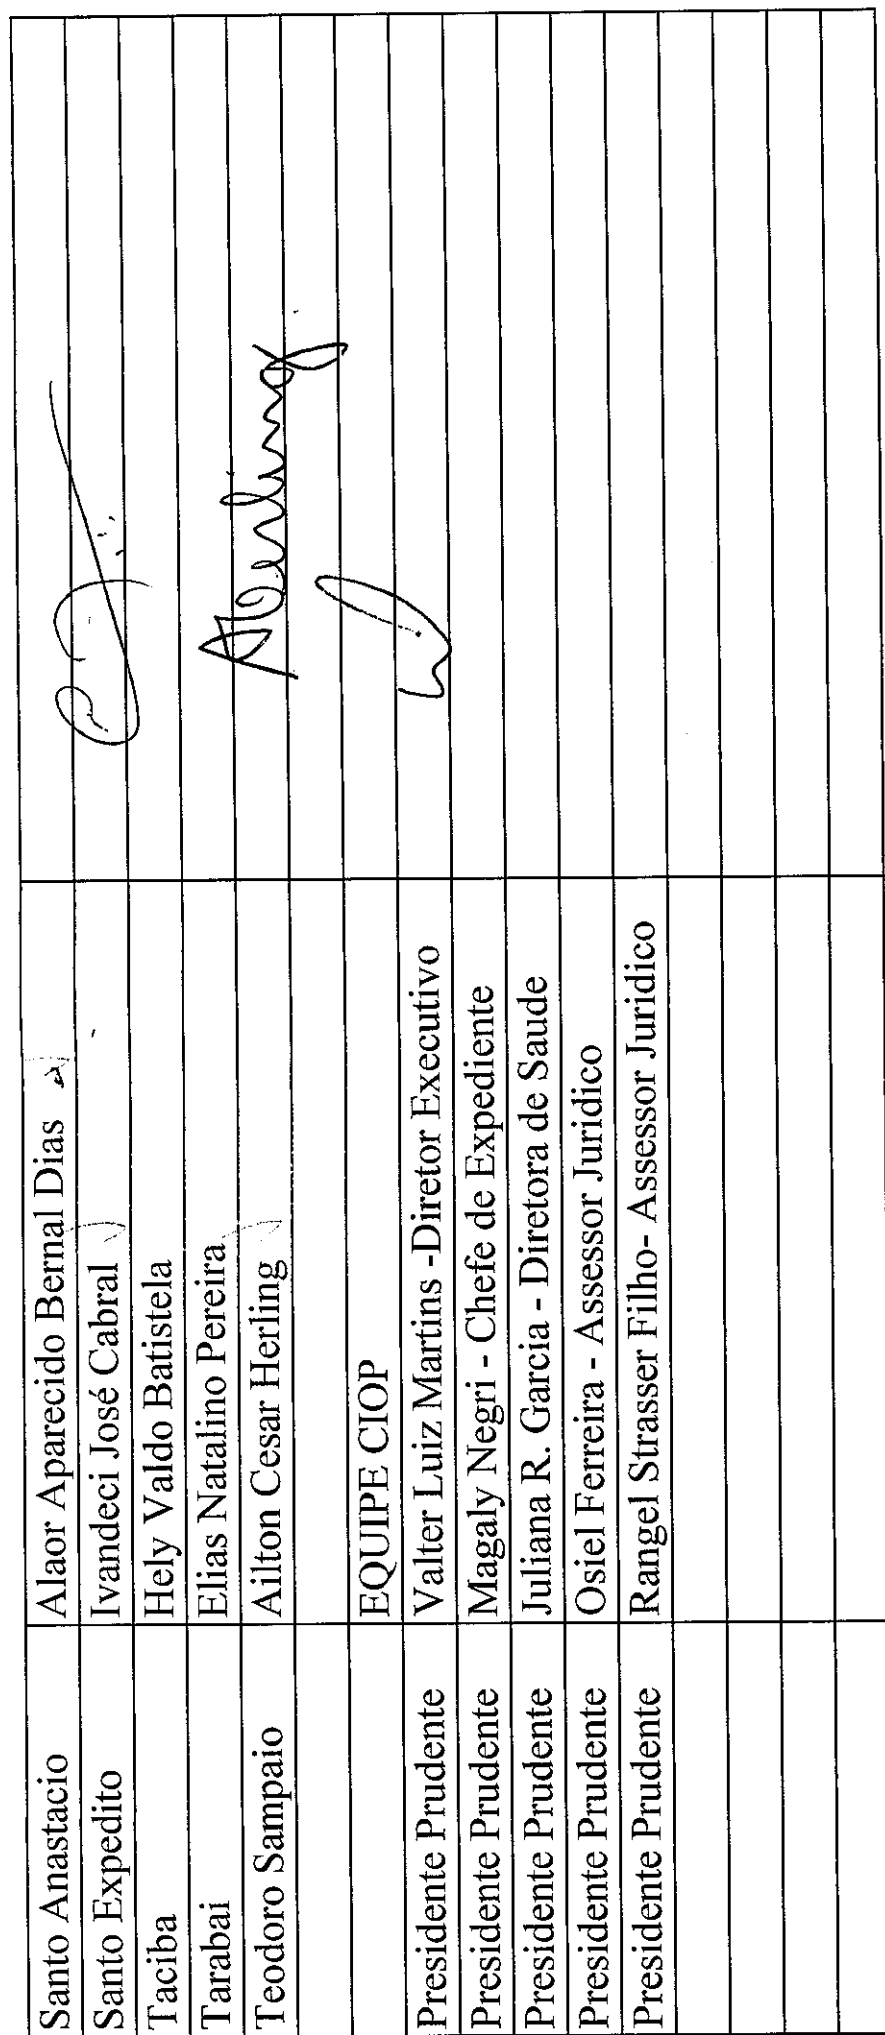 Santo Anastacio Alaor Aparecido Bernal Dias
Santo Expedito Ivandeci José Cabral
Taciba Hely Valdo Batistela
Tarabai Elias Natalino Pereira
Teodoro Sampaio Ailton Cesar Herling
EQUIPE CIOP
Presidente Prudente Valter Luiz Martins -Diretor Executivo
Presidente Prudente Magaly Negri - Chefe de Expediente
Presidente Prudente Juliana R. Garcia - Diretora de Saude
Presidente Prudente Osiel Ferreira - Assessor Juridico
Presidente Prudente Rangel Strasser Filho- Assessor Juridico